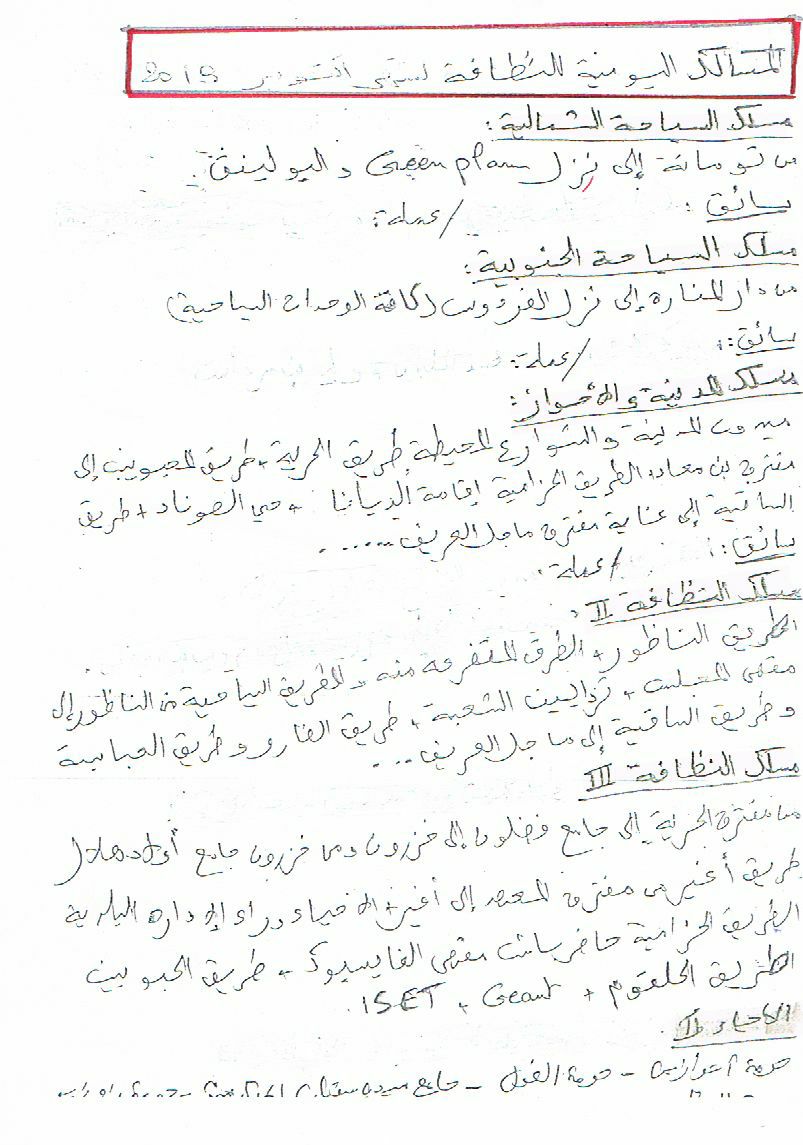 المسالك اليومية للنظافة لشهر أكتوبر 2019
مسلك السياحة الشمالية:
من تومانة إلى نزل Green Palm والبولينق.
سائق: /عملة:
مسلك السياحة الجنوبية:
من دار المنارة إلى نزل الفردوس (كافة الوحدات السياحية)
سائق: /عملة:
مسلك المدينة والأحواز:
المدينة والشوارع المحيطة طريق الحرية + طريق الحبوبين إلى
مفترق بن معاد الطريق الحزامية إقامة الديانا + حي الصوناد + طريق
الساقية إلى عناية مفترق ماجل العريف......
سائق: /عملة.
مسلك النظافة II.
الطريق الناظور + الطرق المتفرعة منه والطريق السياحية من الناظور إلى
مقهى المجلس + الشعبة + طريق الفارو وطريق العباسية
وطريق الساقية إلى ماجل العريف....
مسلك النظافة III
من مفترق الحرية إلى جامع فضلون إلى فزرون ومن فزرون جامع أولاد هلال
طريق أغير من مفترق المعهد إلى أغير + الأحياء وراء الإدارة البلدية
الطريق الحزامية مقهى الفايسبوك + طريق الحبوبين
الطريق الحلقوم + Geant + ISET.
الأحياء II.
حومة - حومة الفول - جامع